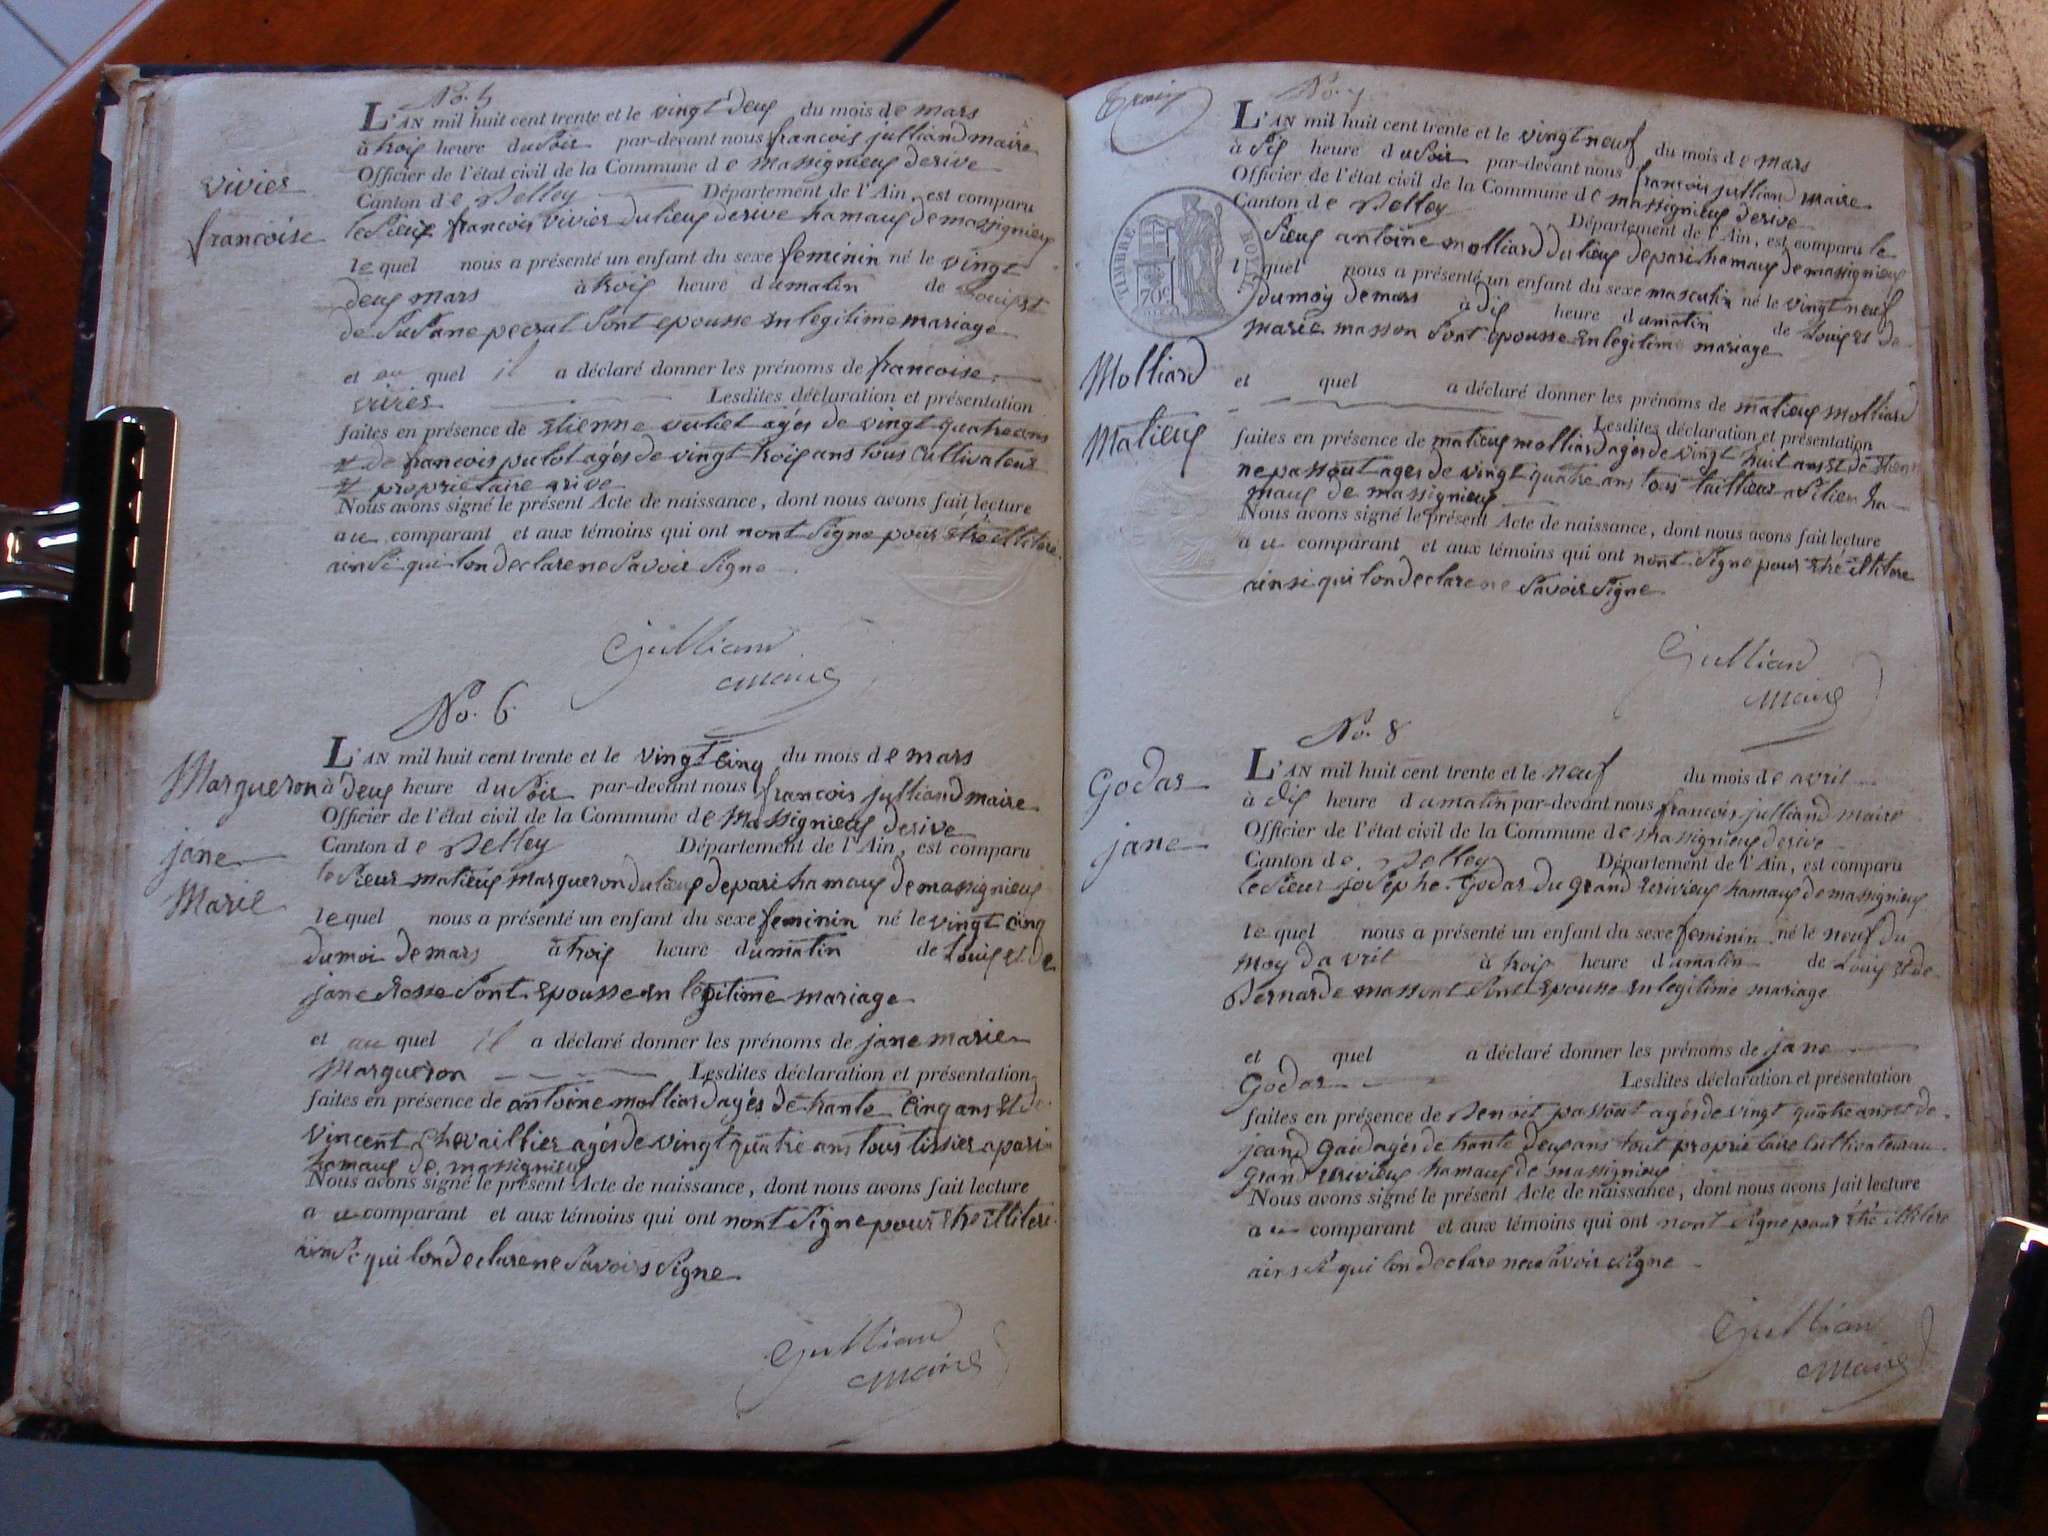 No. 5
L'AN mil huit cent trente et le vingt deux du mois de mars
à trois heure du soir par-devant nous francois julliand maire
Officier de l'état civil de la Commune de massignieux derive
Canton de Belley Département de l'Ain, est comparu
le Sieur francois vivier du lieux derive hamaux de massignieux
vivier
francoise
lequel nous a présenté un enfant du sexe feminin né le vingt
deux mars à trois heure du matin de Louis et
de Susane pecrut sont epousse en legitime mariage
et au quel il a déclaré donner les prénoms de francoise
vivier Lesdites déclaration et présentation
faites en présence de Etienne agés de vingt quatre ans
et de francois putot agés de vingt trois ans tous cultivateur
et proprietaire arive
Nous avons signé le présent Acte de naissance, dont nous avons fait lecture
au comparant et aux témoins qui ont nont signe pour etre illitere
ainsi qui lon declare ne savoir signe
Julliand
maire
No. 6
L'AN mil huit cent trente et le vingt cinq du mois de mars
Margueron
jane
Marie
à deux heure du soir par-devant nous francois julliand maire
Officier de l'état civil de la Commune de massignieux derive
Canton de Belley Département de l'Ain, est comparu
le Sieur matieux margueron du lieux depari hamaux de massignieux
lequel nous a présenté un enfant du sexe feminin né le vingt cinq
du moi de mars à trois heure du matin de Louis et de
jane Rosse sont epousse en legitime mariage
et au quel il a déclaré donner les prénoms de jane marie
Margueron Lesdites déclaration et présentation
faites en présence de antoine molliard agés de trante cinq ans et de
vincent chevaillier agés de vingt quatre ans tous tissier apari
hamaux de massignieux
Nous avons signé le présent Acte de naissance, dont nous avons fait lecture
au comparant et aux témoins qui ont nont signe pour etre illitere
ainsi qui lon declare ne savoir signe
Julliand
maire
No. 7
L'AN mil huit cent trente et le vingt neuf du mois de mars
à six heure du soir par-devant nous francois julliand maire
Officier de l'état civil de la Commune de massignieux derive
Canton de Belley Département de l'Ain, est comparu le
Sieur antoine molliard du lieux depari hamaux de massignieux
TIMBRE ROYAL
70c
lequel nous a présenté un enfant du sexe masculin né le vingt neuf
du moy de mars à dix heure du matin de Louis et de
marie masson sont epousse en legitime mariage
Molliard
Matieux
et quel a déclaré donner les prénoms de matieux molliard
Lesdites déclaration et présentation
faites en présence de matieux molliard agés de vingt huit ans et de Etien
ne passout ages de vingt quatre ans tous tailleur ha
maux de massignieux
Nous avons signé le présent Acte de naissance, dont nous avons fait lecture
au comparant et aux témoins qui ont nont signe pour etre illitere
ainsi qui lon declare ne savoir signe
Julliand
maire
No. 8
L'AN mil huit cent trente et le neuf du mois de avril
Godar
jane
à dix heure du matin par-devant nous francois julliand maire
Officier de l'état civil de la Commune de massignieux derive
Canton de Belley Département de l'Ain, est comparu
le Sieur josephe Godar du grand hamaux de massignieux
lequel nous a présenté un enfant du sexe feminin né le neuf du
moy davril à trois heure du matin de Louis et de
Bernarde massont sont epousse en legitime mariage
et quel a déclaré donner les prénoms de jane
Godar Lesdites déclaration et présentation
faites en présence de Benoit passout agés de vingt quatre ans et de
jeand agés de trante deux ans tout proprietaire cultivateur au
grand hamaux de massignieux
Nous avons signé le présent Acte de naissance, dont nous avons fait lecture
au comparant et aux témoins qui ont nont signe pour etre illitere
ainsi qui lon declare ne savoir signe
Julliand
maire